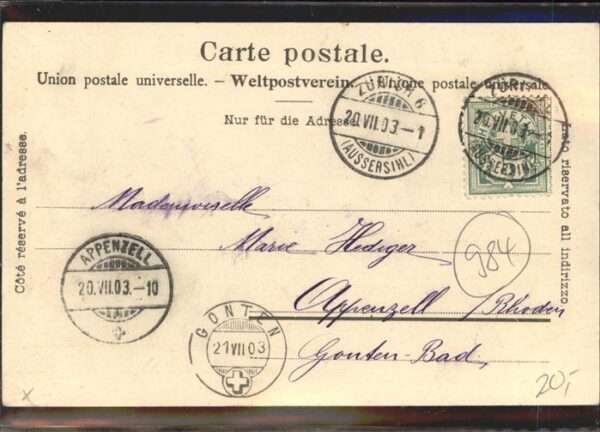 Carte postale.
Union postale universelle. – Weltpostverein. – Unione postale universale
Nur für die Adresse.
Côté réservé à l'adresse.
Lato riservato all indirizzo.
ZÜRICH 6
20.VII.03.–1
(AUSSERSIHL)
ZÜRICH
20.VII.03.
(AUSSERSIHL)
Mademoiselle
Marie Hediger
984
APPENZELL
20.VII.03.–10
Appenzell /Rhoden
GONTEN
21 VII 03
Gonten-Bad,
x
20,-